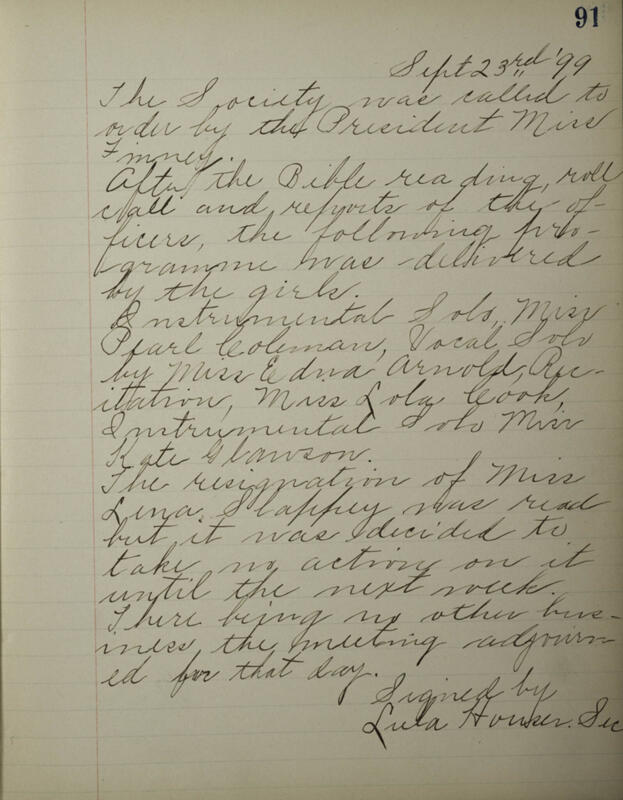 91
Sept 23rd '99
The Society was called to
order by the President Miss
Finney.
After the Bible reading, roll
call and reports of the of-
ficers, the following pro-
gramme was delivered
by the girls.
Instrumental Solo, Miss
Pearl Coleman, Vocal Solo
by Miss Edna Arnold, Rec-
itation, Miss Lola Cook,
Instrumental Solo Miss
Kate Glawson.
The resignation of Miss
Lena Slappey was read
but it was decided to
take no action on it
until the next week.
There being no other bus-
iness the meeting adjourn-
ed for that day.
Signed by
Lula Houser. Sec